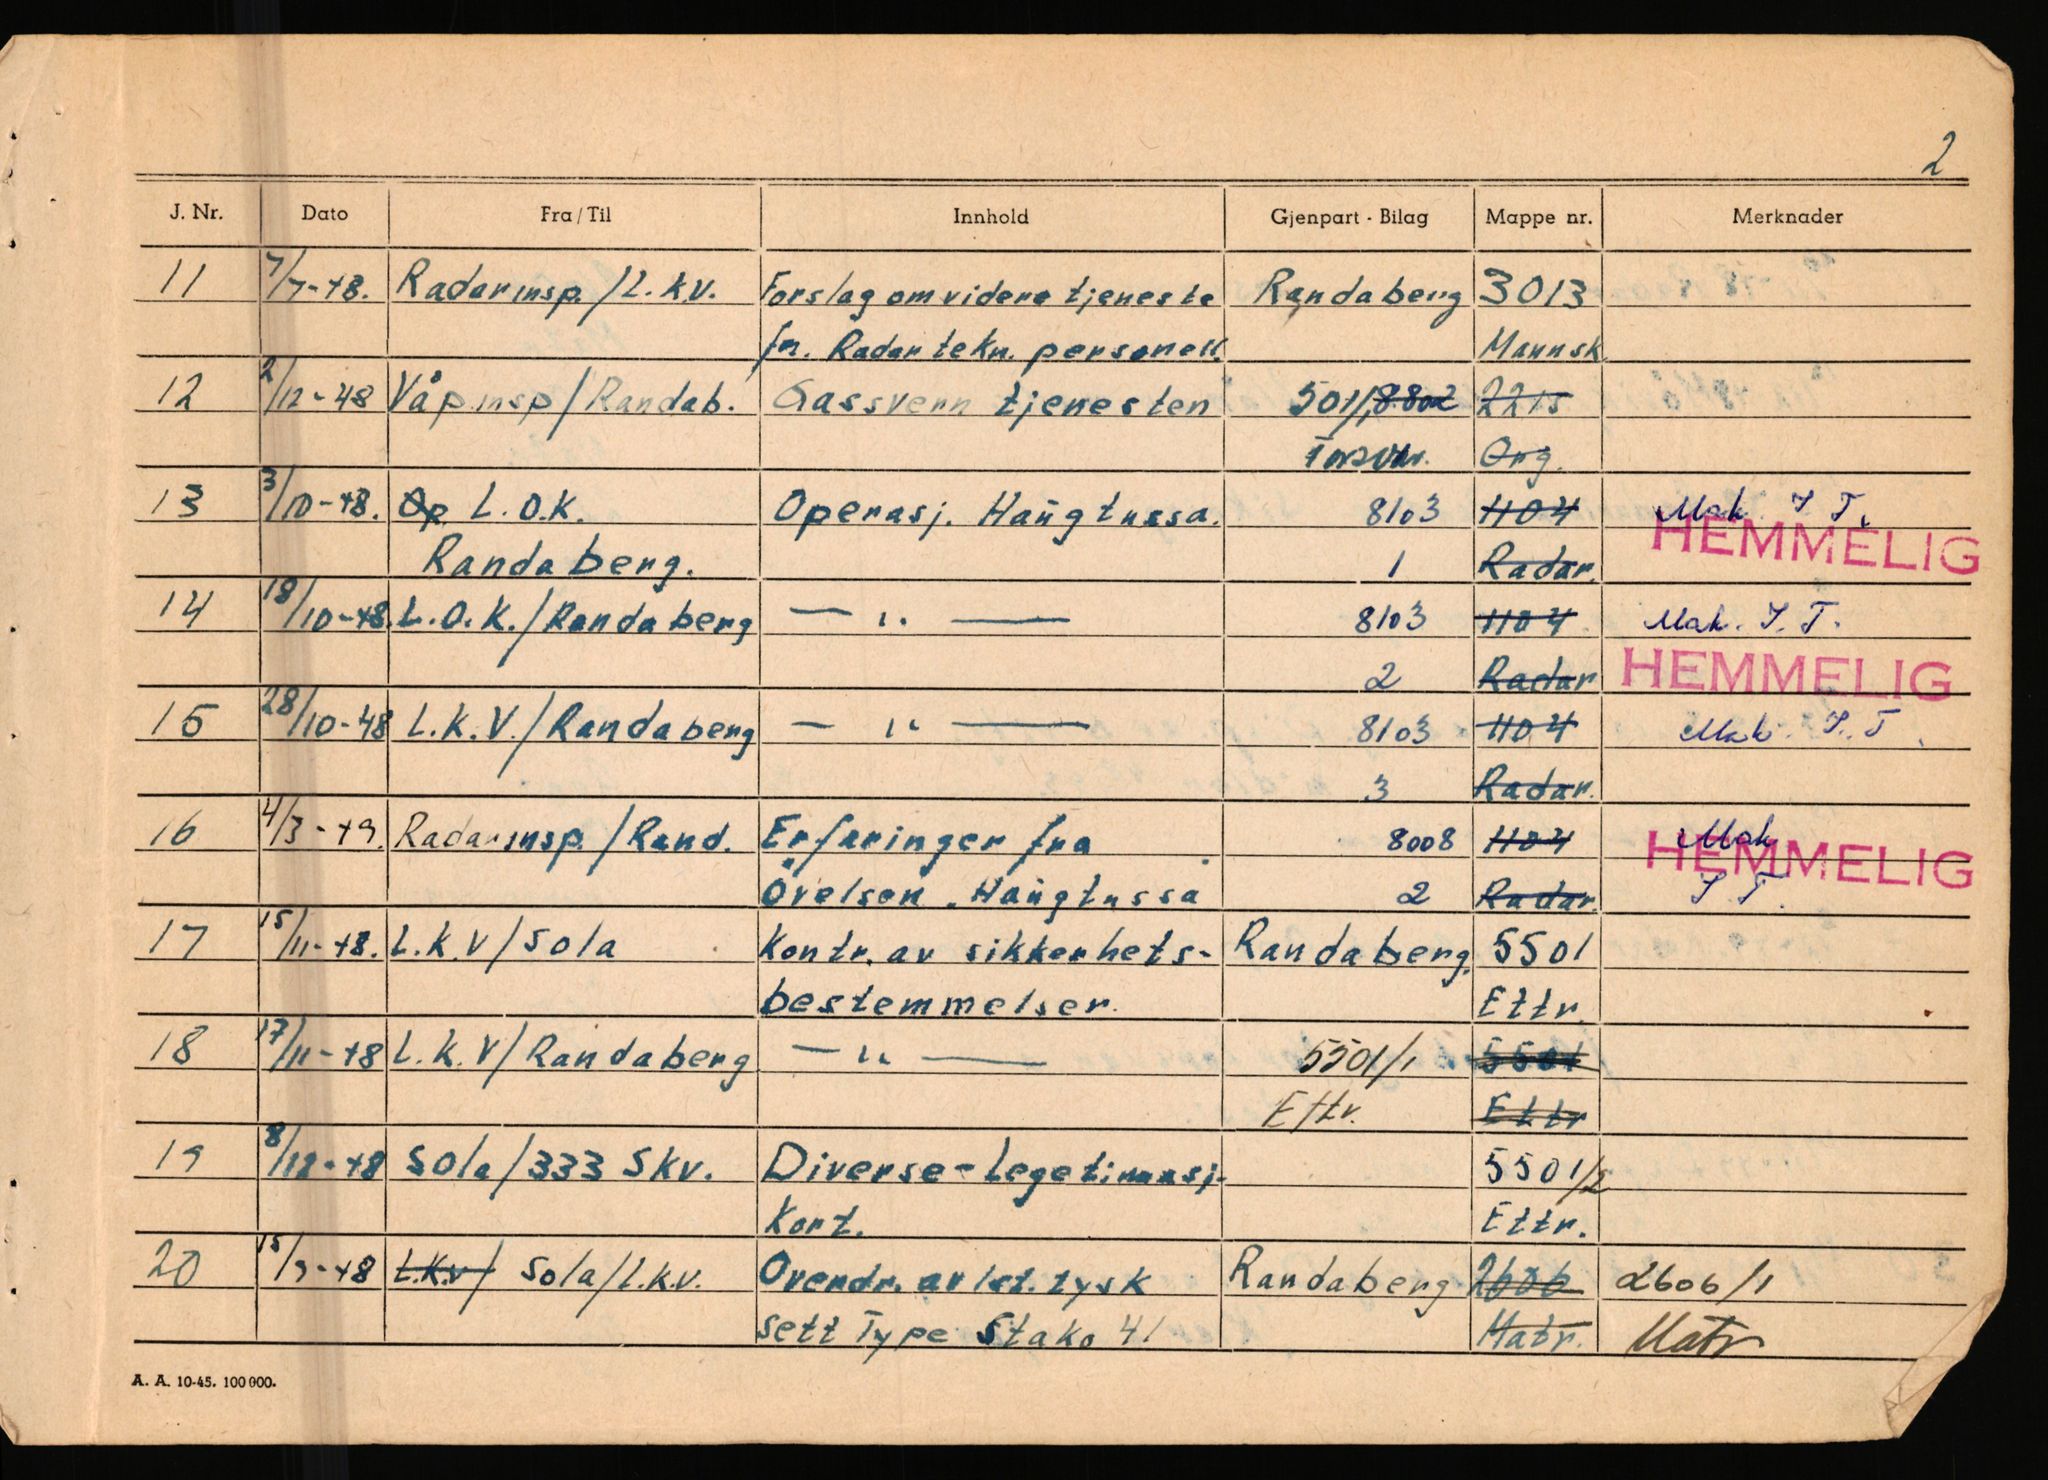 2
J. Nr. Dato Fra/Til Innhold Gjenpart - Bilag Mappe nr. Merknader
11 7/7-48. Radarinsp./L.K.V. Forslag om videre tjeneste Randaberg 3013
for Radartekn. personell. Mannsk
12 2/12-48 Våpinsp/Randab. Gassvern tjenesten 501/8802 2215
Org.
13 3/10-48. Op L.O.K. Operasj. Haügtussa. 8103 1104 Mak. I T.
Randaberg. 1 Radar. HEMMELIG
14 18/10-48. L.O.K./Randaberg — " — 8103 1104 Mak. I.T.
2 Radar HEMMELIG
15 28/10-48 L.K.V./Randaberg — " — 8103 1104 Mak. I.T.
3 Radar.
16 4/3-49. Radarinsp./Rand. Erfaringer fra 8008 1104 Mak
Övelsen "Haügtussa 2 Radar. I T. HEMMELIG
17 15/11-48. L.K.V/Sola Kontr. av sikkerhets- Randaberg. 5501
bestemmelser. Ettr.
18 17/11-48 L.K.V/Randaberg — " — 5501/1 5501
Ettr. Ettr
19 8/12-48 Sola/333 Skv. Diverse-Legetimasj- 5501/2
Kort. Ettr.
20 15/9-48 L.K.V/ Sola/L.K.V. Overdr. av let. tysk Randaberg 2606 2606/1
sett Type Stako 41 Matr. Matr
A. A. 10-45. 100 000.